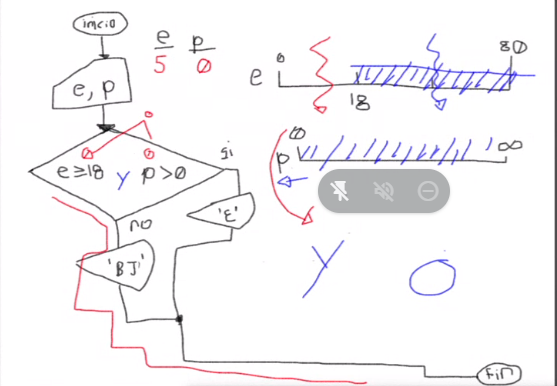 inicio
e p
5 0
e, p
0
0 0
e≥18 y p>0
si
no
'E'
'BJ'
Fin
e 0 18 80
p 0 ∞
y O